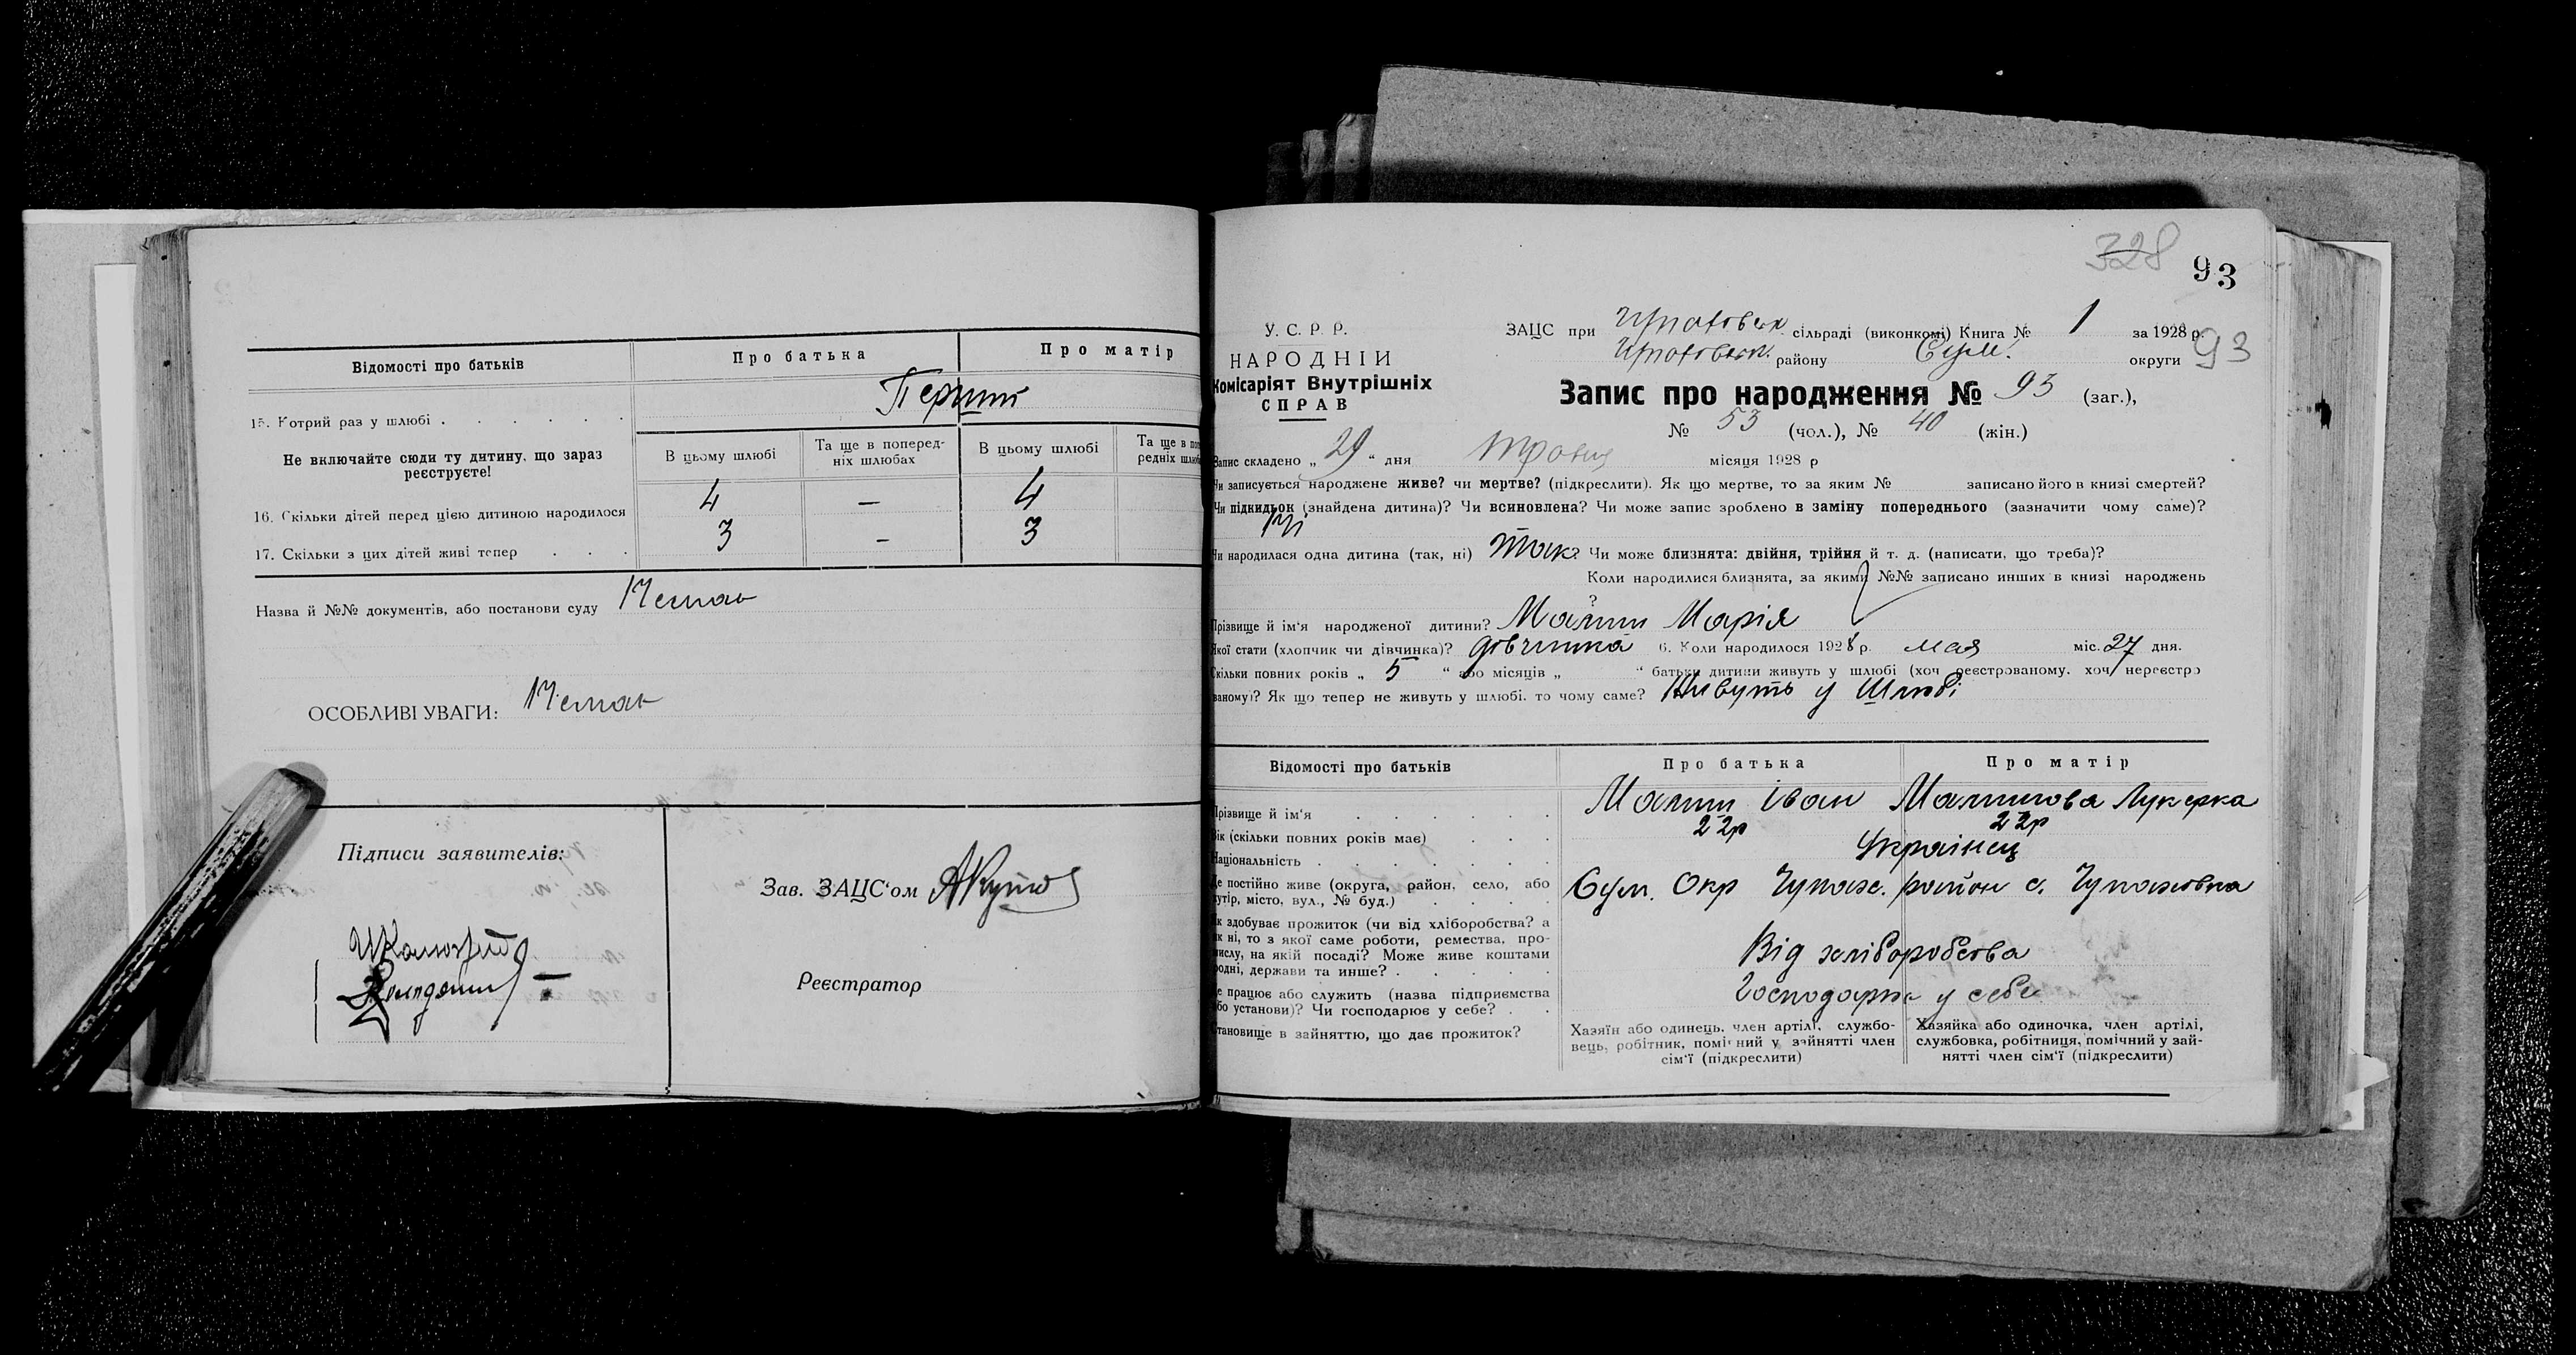 Відомості про батьків
Про батька
Про матір
15. Котрий раз у шлюбі . . . . . .
Перший
Не включайте сюди ту дитину, що зараз
реєструєте!
В цьому шлюбі
Та ще в поперед-
ніх шлюбах
В цьому шлюбі
Та ще в поп
редніх шлюб
16. Скільки дітей перед цією дитиною народилося
4 — 4
17. Скільки з цих дітей живі тепер . . .
3 — 3
Назва й №№ документів, або постанови суду Немає
ОСОБЛИВІ УВАГИ: Немає
Підписи заявителів:
Зав. ЗАЦС'ом
Реєстратор
328
93
У. С. Р. Р.
НАРОДНІЙ
Комісаріят Внутрішніх
СПРАВ
ЗАЦС при сільраді (виконкомі) Книга № 1 за 1928 р.
району Сум. округи 93
Запис про народження № 93 (заг.),
№ 53 (чол.), № 40 (жін.)
Запис складено „ 29 “ дня Травня місяця 1928 р
Чи записується народжене живе? чи мертве? (підкреслити). Як що мертве, то за яким № записано його в книзі смертей?
Чи підкидьок (знайдена дитина)? Чи всиновлена? Чи може запис зроблено в заміну попереднього (зазначити чому саме)?
Ні
Чи народилася одна дитина (так, ні) Так? Чи може близнята: двійня, трійня й т. д. (написати, що треба)?
Коли народилися близнята, за якими №№ записано инших в книзі народжень
?
Прізвище й ім'я народженої дитини? Малиш Марія
Якої стати (хлопчик чи дівчинка)? дівчинка 6. Коли народилося 1928 р. мая міс. 27 дня.
Скільки повних років „ 5 “ або місяців „ “ батьки дитини живуть у шлюбі (хоч реєстрованому, хоч нереєстро
ваному)? Як що тепер не живуть у шлюбі, то чому саме? Живуть у Шлюбі
Відомості про батьків
Про батька
Про матір
Прізвище й ім'я . . . . . .
Малиш Іван
Малишова Лукерка
Вік (скільки повних років має) . . .
22р
22р
Національність . . . . . . .
Українец
Де постійно живе (округа, район, село, або
хутір, місто, вул., № буд.) . . . .
Сум. Окр Чупах. район с. Чупаховка
Як здобуває прожиток (чи від хліборобства? а
як ні, то з якої саме роботи, ремества, про-
мислу, на якій посаді? Може живе коштами
родні, держави та инше? . . . . .
Від хлібороб­ства
Де працює або служить (назва підприємства
або установи)? Чи господарює у себе? . .
Господарює у себе
Становище в зайняттю, що дає прожиток?
Хазяїн або одинець, член артілі, службо-
вець, робітник, помічний у зайнятті член
сім'ї (підкреслити)
Хазяйка або одиночка, член артілі,
службовка, робітниця, помічний у зай-
нятті член сім'ї (підкреслити)